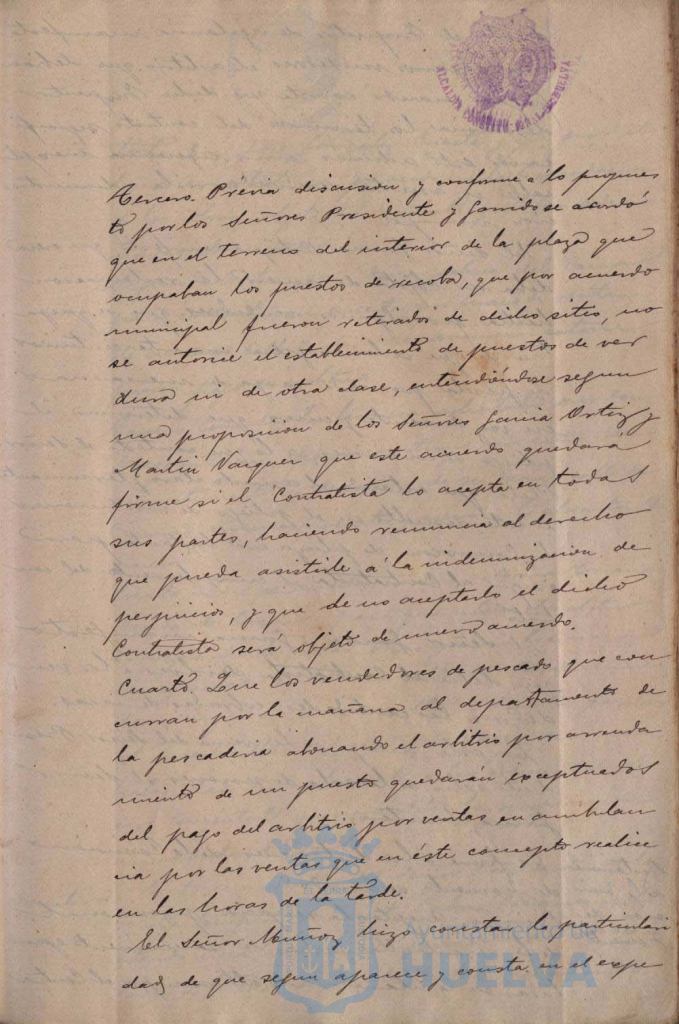 ALCALDIA CONSTITUCIONAL DE HUELVA
Tercero. Prévia discusion y conforme a lo propues
tó por los Señores Presidente y Garrido se acordó
que en el terreno del interior de la plaza que
ocupaban los puestos de recoba, que por acuerdo
municipal fueron retirados de dicho sitio, no
se autorice el establecimiento de puestos de ver
dura ni de otra clase, entendiéndose segun
una proposicion de los Señores Garcia Ortiz y
Martin Vazquez que este acuerdo quedará
firme si el Contratista lo acepta en todas
sus partes, haciendo renuncia al derecho
que pueda asistirle á la indemnizacion de
perjuicios, y que de no aceptarlo el dicho
Contratista será objeto de nuevo acuerdo.
Cuarto. Que los vendedores de pescado que con
curran por la mañana al departamento de
la pescaderia abonando el arbitrio por arrenda
miento de un puesto quedarán exceptuados
del pago del arbitrio por ventas en ambulan
cia por las ventas que en éste concepto realice
en las horas de la tarde.
El Señor Muñoz hizo constar la particulari
dad de que segun aparece y consta en el expe
Ayuntamiento de
HUELVA